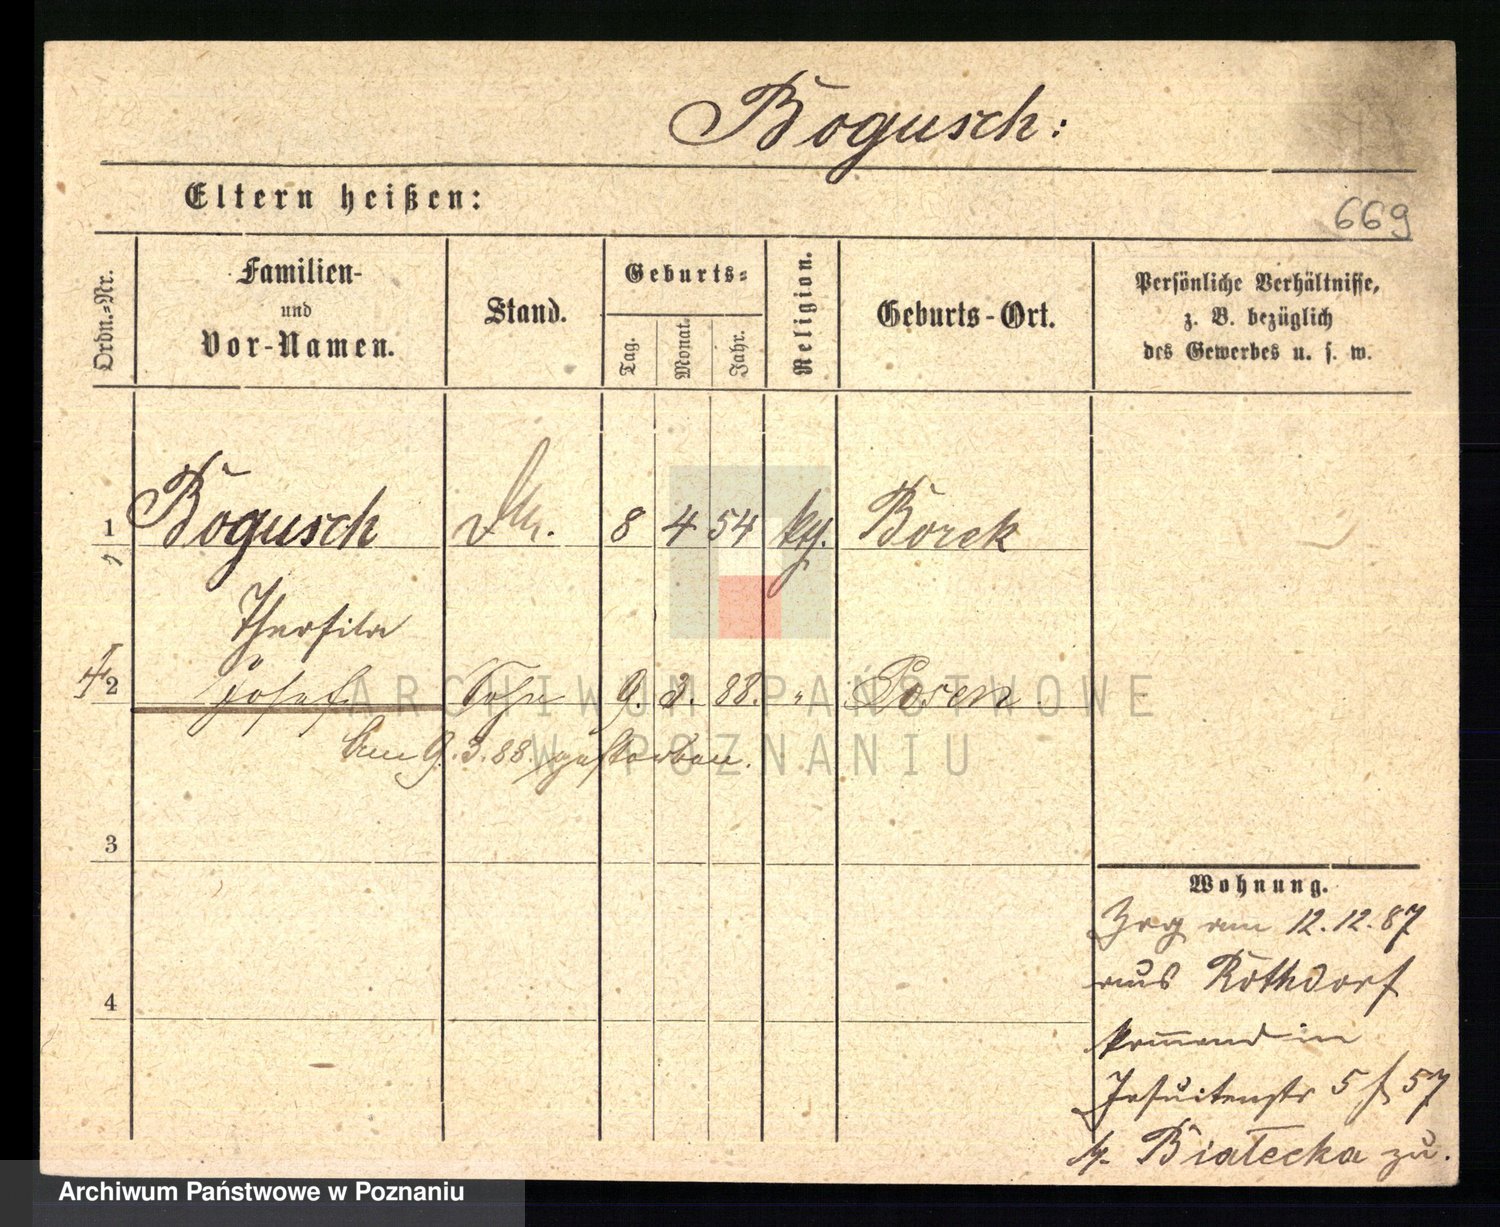 Bogusch:
Eltern heißen:
669
Ordn.-Nr.
Familien- und Vor-Namen.
Stand.
Geburts-
Tag.
Monat.
Jahr.
Religion.
Geburts-Ort.
Persönliche Verhältnisse,
z. B. bezüglich
des Gewerbes u. s. w.
1 Bogusch 8 4 54 Borek
Theofila
2 Josef Sohn 9. 3. 88. " Posen
Am 9.3.88. gestorben.
3
4
Wohnung.
Zrg am 12.12.87
aus Rothdorf
kommend in
Jesuitenstr 5 f 57
b. Białecka zu.
ARCHIWUM PAŃSTWOWE
W POZNANIU
Archiwum Państwowe w Poznaniu